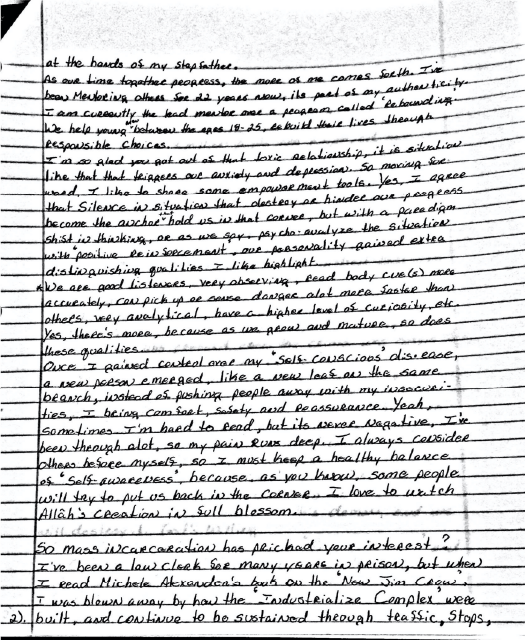 at the hands of my stepfather.
As our time together progress, the more of me comes forth. I've
been Mentoring others for 22 years now, its part of my authenticity.
I am currently the lead mentor over a program called "Rebounding".
We help young "men" between the ages 18-25, rebuild their lives through
Responsible choices.
I'm so glad you got out of that toxic relationship, it is situation
like that that triggers our anxiety and depression. So moving for-
ward, I like to share some empowerment tools. Yes, I agree
that Silence in situation that destroy or hinder our progress
become the anchor hold us in that corner, but with a paradigm
shift in thinking, or as we say, psycho-analyze the situation
with "positive Reinforcement", our personality gained extra
distinguishing qualities I like highlight.
We are good listeners, very observing, read body cue(s) more
accurately, can pick up or sense danger alot more faster than
others, very analytical, have a higher level of curiosity, etc.
Yes, there's more, because as we grow and mature, so does
these qualities.
Once I gained control over my "self-conscious" dis-ease,
a new person emerged, like a new leaf on the same
branch, instead of pushing people away with my insecuri-
ties, I bring comfort, safety and Reassurance. Yeah,
sometimes I'm hard to read, but its never negative, I've
been through alot, so my pain runs deep. I always consider
others before myself, so I must keep a healthy balance
of "self-awareness", because as you know, some people
will try to put us back in the corner. I love to watch
Allāh's creation in full blossom.
So mass incarceration has pricked your interest?
I've been a law clerk for many years in prison, but when
I read Michele Alexander's book on the "New Jim Crow",
I was blown away by how the "Industrialize Complex" were
2). built, and continue to be sustained through traffic, stops,